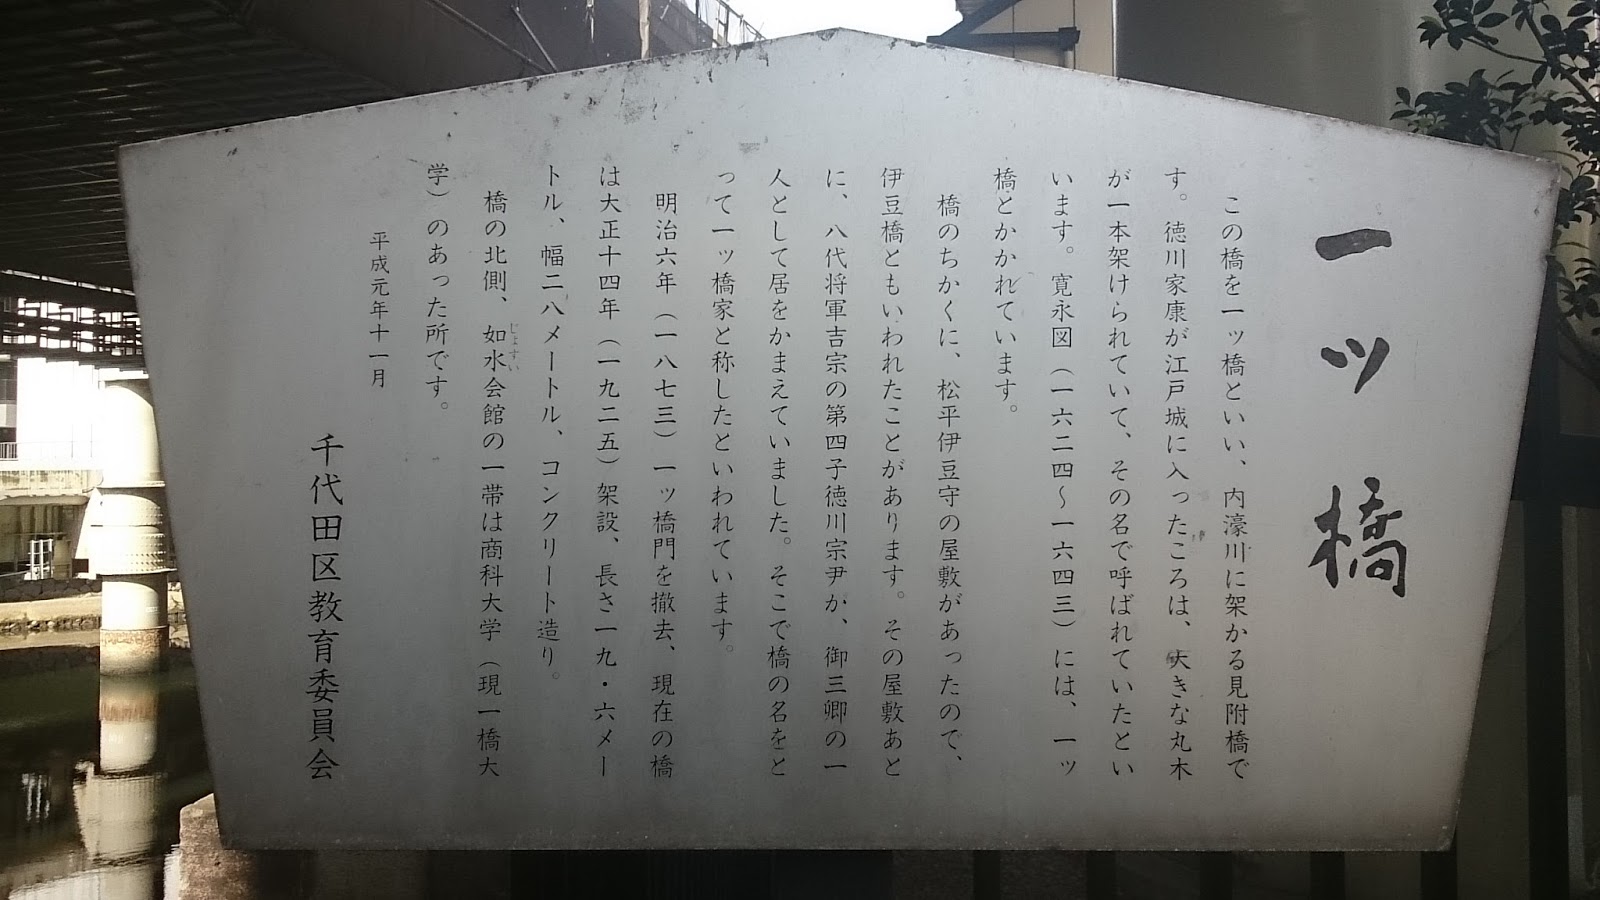 一ッ橋
この橋を一ッ橋といい、内濠川に架かる見附橋で
す。徳川家康が江戸城に入ったころは、大きな丸木
が一本架けられていて、その名で呼ばれていたとい
います。寛永図（一六二四～一六四三）には、一ッ
橋とかかれています。
橋のちかくに、松平伊豆守の屋敷があったので、
伊豆橋ともいわれたことがあります。その屋敷あと
に、八代将軍吉宗の第四子徳川宗尹が、御三卿の一
人として居をかまえていました。そこで橋の名をと
って一ッ橋家と称したといわれています。
明治六年（一八七三）一ッ橋門を撤去、現在の橋
は大正十四年（一九二五）架設、長さ一九・六メー
トル、幅二八メートル、コンクリート造り。
橋の北側、如水会館の一帯は商科大学（現一橋大
じょすい
学）のあった所です。
平成元年十一月
千代田区教育委員会